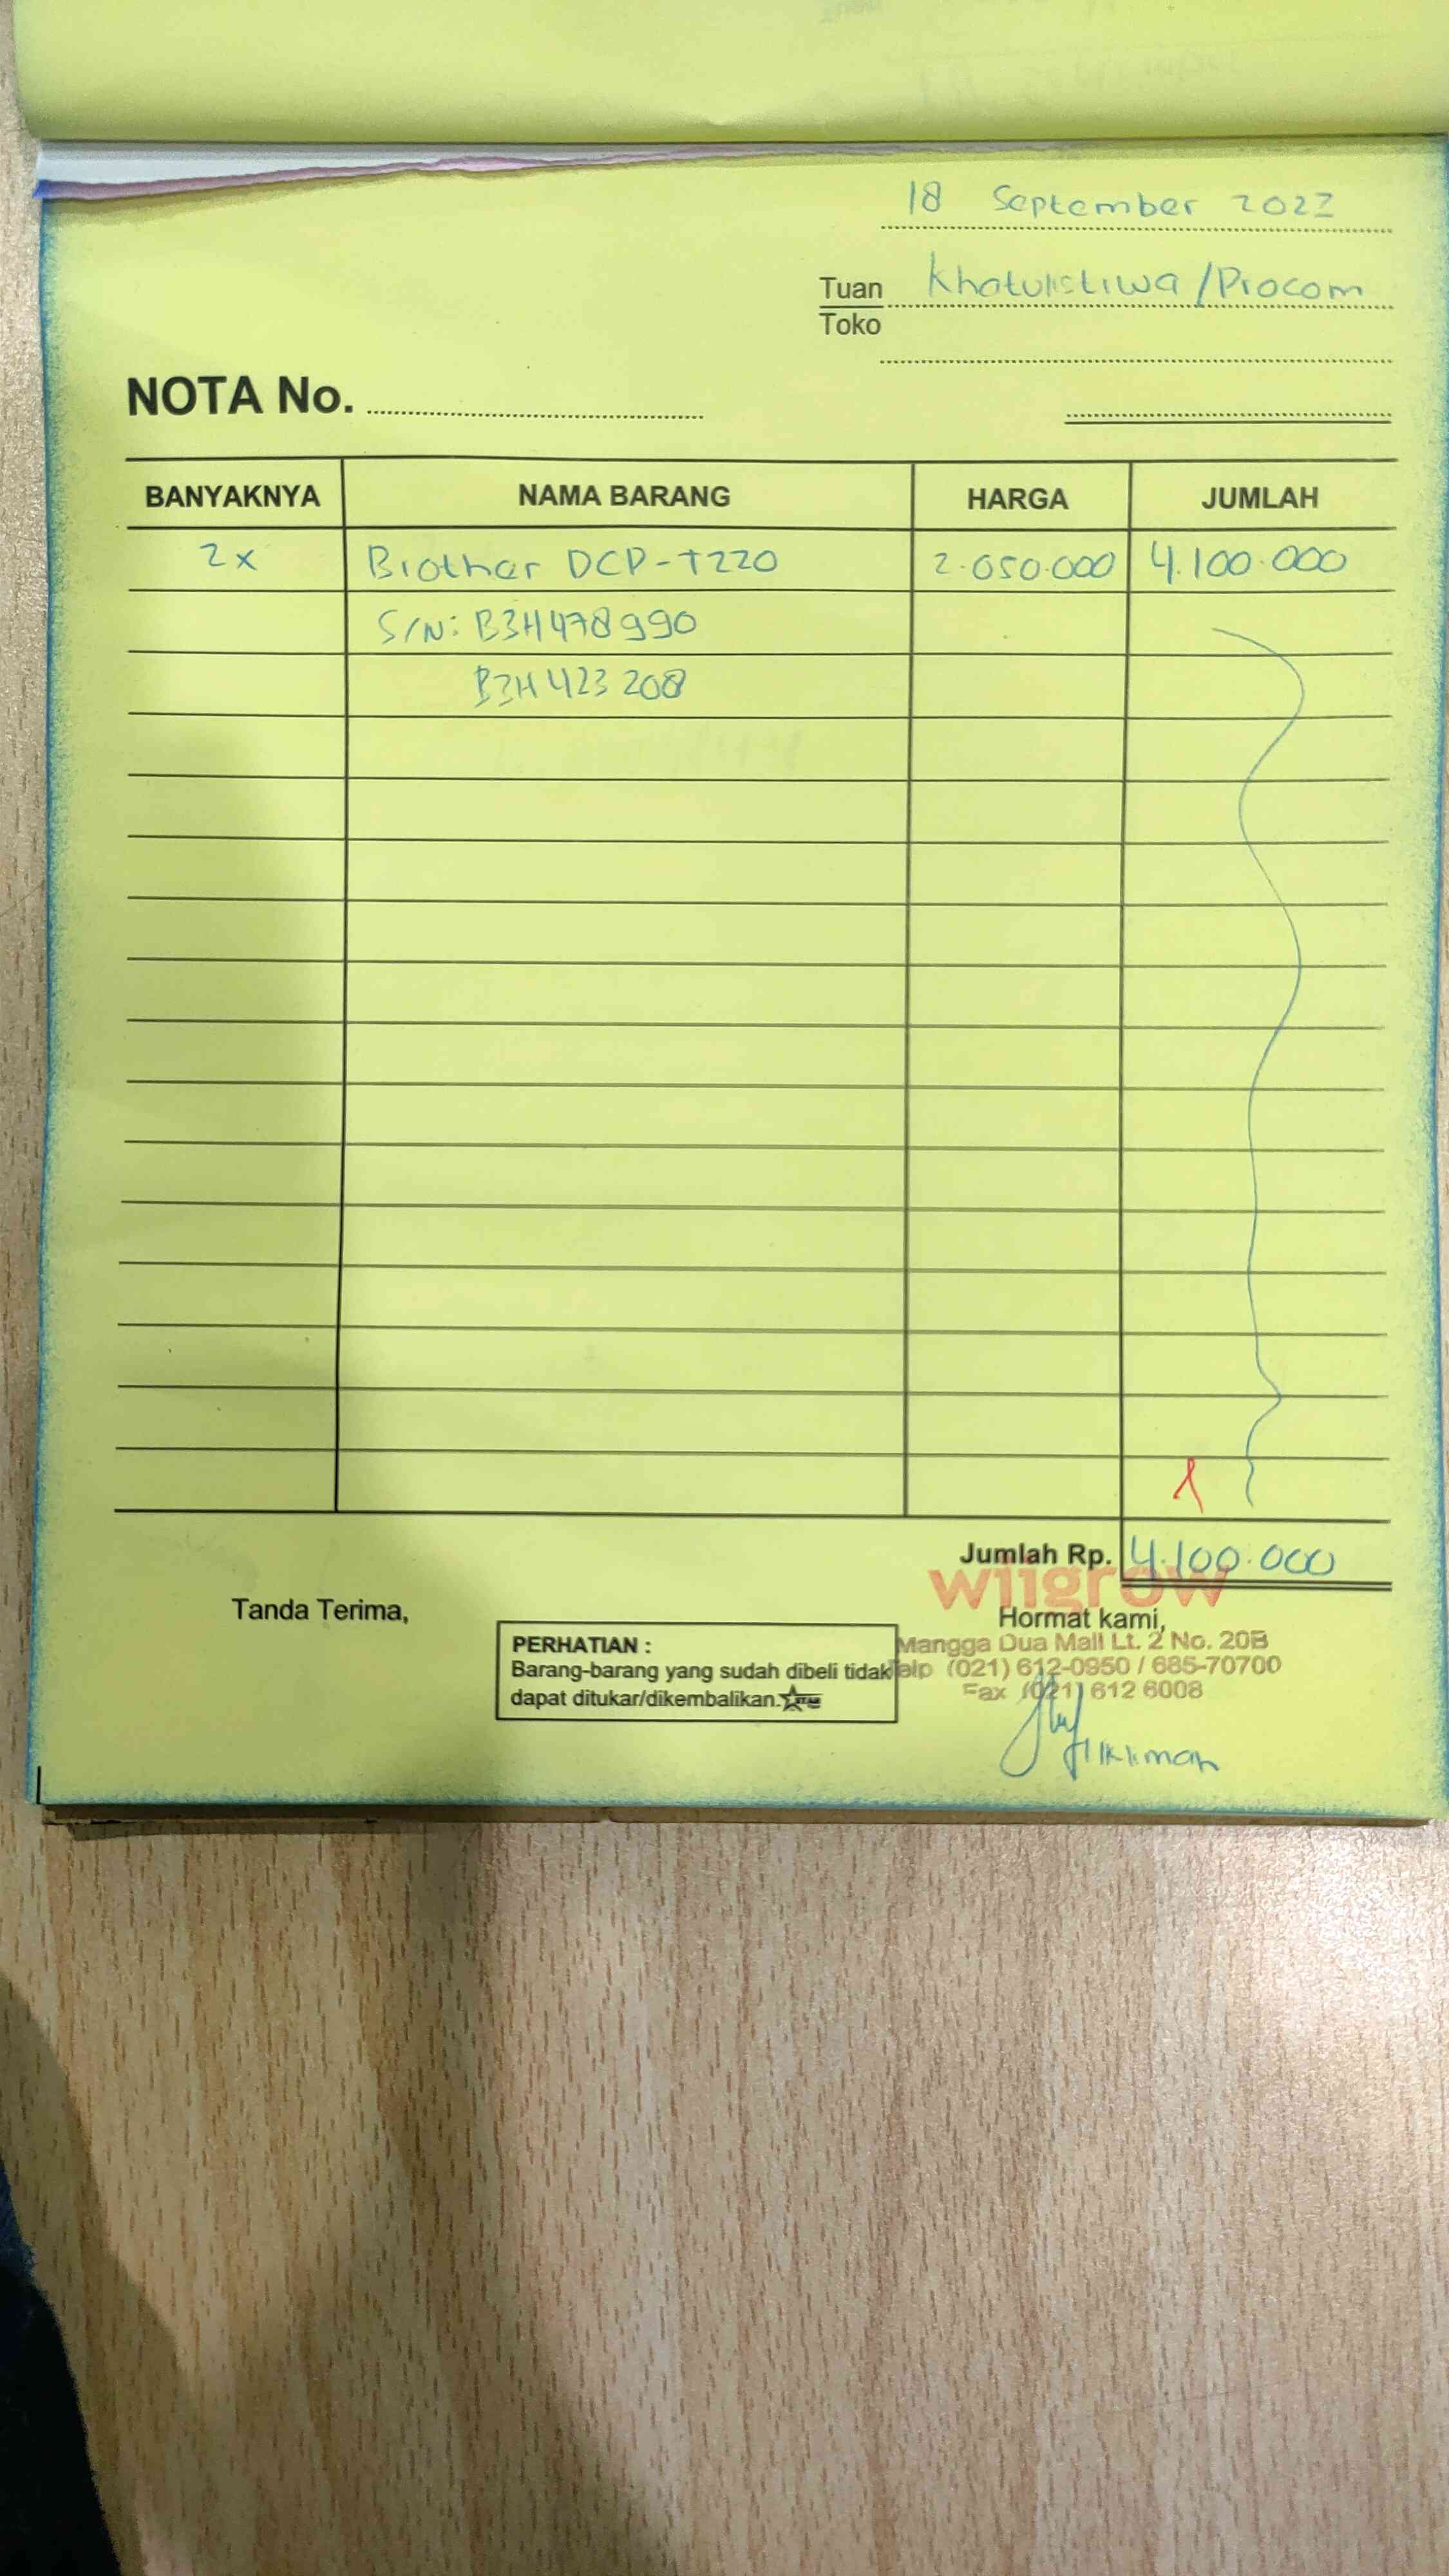 18 September 2022
Tuan Khatulistiwa/Procom
Toko
NOTA No.
BANYAKNYA NAMA BARANG HARGA JUMLAH
2x Brother DCP-T220 2.050.000 4.100.000
S/N: B3H478990
B3H423208
Jumlah Rp. 4.100.000
wiigrow
Tanda Terima,
Hormat kami,
PERHATIAN :
Barang-barang yang sudah dibeli tidak
dapat ditukar/dikembalikan.
Mangga Dua Mall Lt. 2 No. 20B
Telp (021) 612-0950 / 685-70700
Fax (021) 612 6008